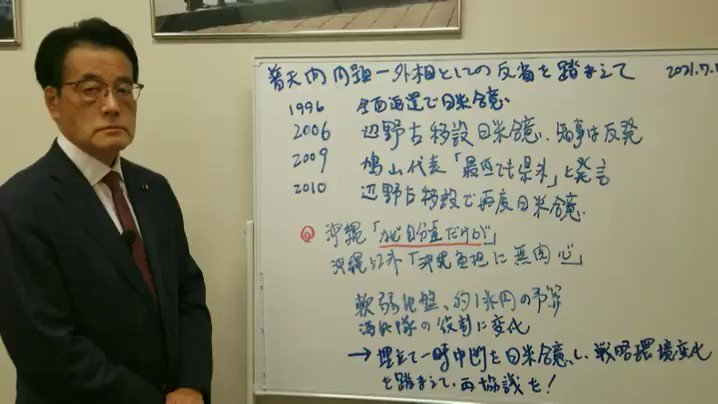 普天間問題ー外相としての反省を踏まえて 2021.7.
1996 全面返還で日米合意
2006 辺野古移設日米合意、知事は反発
2009 鳩山代表「最低でも県外」と発言
2010 辺野古移設で再度日米合意
Q 沖縄「なぜ自分達だけが」
沖縄以外「沖縄負担に無関心」
軟弱地盤、約1兆円の予算
海兵隊の役割に変化
→埋立て一時中断を日米合意し、戦略環境変化
を踏まえて、再協議を!